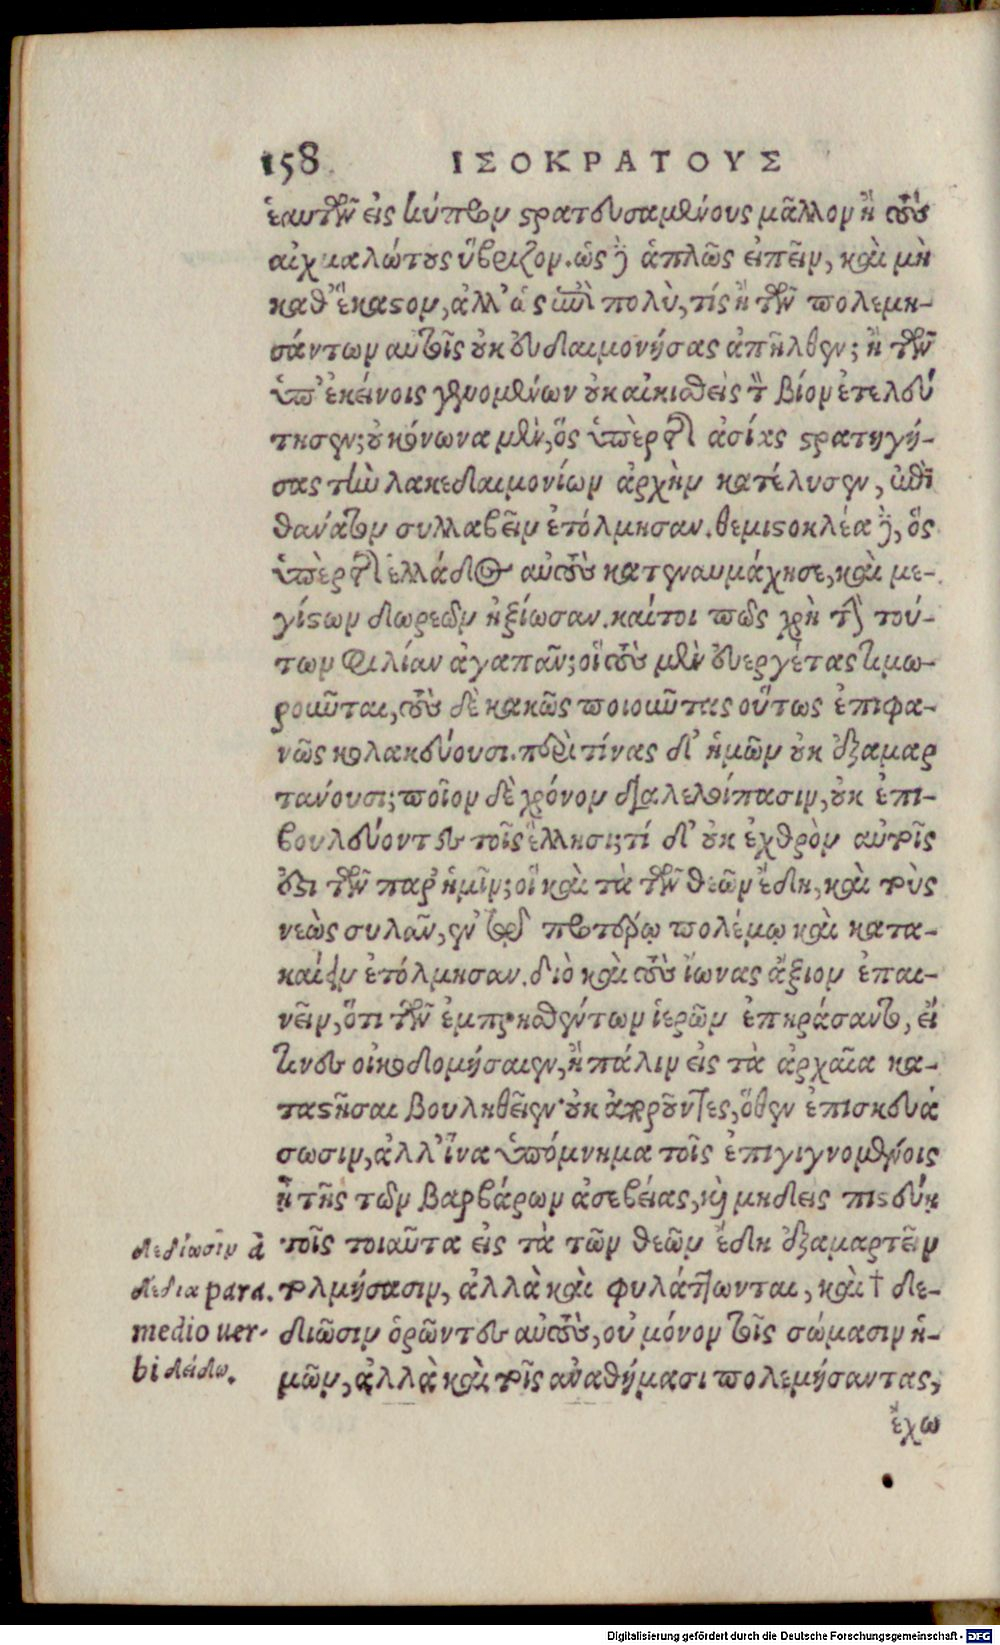 158 ΙΣΟΚΡΑΤΟΥΣ
ἑαυτῶν εἰς κύπρον στρατευσαμένους μᾶλλον ἢ τοὺς
αἰχμαλώτους ὕβριζον. ὡς δὲ ἁπλῶς εἰπεῖν, καὶ μὴ
καθ' ἕκαστον, ἀλλ' ὡς ἐπὶ πολὺ, τίς ἢ τῶν πολεμη-
σάντων αὐτοῖς οὐκ εὐδαιμονήσας ἀπῆλθεν; ἢ τῶν
ὑπ' ἐκείνοις γενομένων οὐκ αἰκισθεὶς τὸν βίον ἐτελεύ
τησεν; οὐ κόνωνα μὲν, ὃς ὑπὲρ τῆς ἀσίας στρατηγή-
σας τὴν λακεδαιμονίων ἀρχὴν κατέλυσεν, ἐπὶ
θανάτῳ συλλαβεῖν ἐτόλμησαν. θεμιστοκλέα δὲ, ὃς
ὑπὲρ τῆς ἑλλάδος αὐτοὺς κατεναυμάχησε, καὶ με-
γίστων δωρεῶν ἠξίωσαν. καίτοι πῶς χρὴ τὴν τού-
των φιλίαν ἀγαπᾶν; οἳ τοὺς μὲν εὐεργέτας τιμω-
ροῦνται, τοὺς δὲ κακῶς ποιοῦντας οὕτως ἐπιφα-
νῶς κολακεύουσι. περὶ τίνας δ' ἡμῶν οὐκ ἐξαμαρ
τάνουσι; ποῖον δὲ χρόνον διαλελοίπασιν, οὐκ ἐπι-
βουλεύοντες τοῖς ἕλλησι; τί δ' οὐκ ἐχθρὸν αὐτοῖς
ἐστι τῶν παρ' ἡμῖν; οἳ καὶ τὰ τῶν θεῶν ἕδη, καὶ τοὺς
νεὼς συλᾶν, ἐν τῷ προτέρῳ πολέμῳ καὶ κατα-
καίειν ἐτόλμησαν. διὸ καὶ τοὺς ἴωνας ἄξιον ἐπαι-
νεῖν, ὅτι τῶν ἐμπρησθέντων ἱερῶν ἐπηράσαντο, εἴ
τινες οἰκοδομήσαιεν, ἢ πάλιν εἰς τὰ ἀρχαῖα κα-
ταστῆσαι βουληθεῖεν· οὐκ ἀποροῦντες, ὅθεν ἐπισκευά
σωσιν, ἀλλ' ἵνα ὑπόμνημα τοῖς ἐπιγιγνομένοις
ᾖ τῆς τῶν βαρβάρων ἀσεβείας, καὶ μηδεὶς πιστεύῃ
τοῖς τοιαῦτα εἰς τὰ τῶν θεῶν ἕδη ἐξαμαρτεῖν
τολμήσασιν, ἀλλὰ καὶ φυλάττωνται, καὶ † δε-
διῶσιν ὁρῶντες αὐτοὺς, οὐ μόνον τοῖς σώμασιν ἡ-
μῶν, ἀλλὰ καὶ τοῖς ἀναθήμασι πολεμήσαντας,
ἔχω
δεδίωσιν à
δεδια para.
medio uer-
bi δείδω.
Digitalisierung gefördert durch die Deutsche Forschungsgemeinschaft - DFG